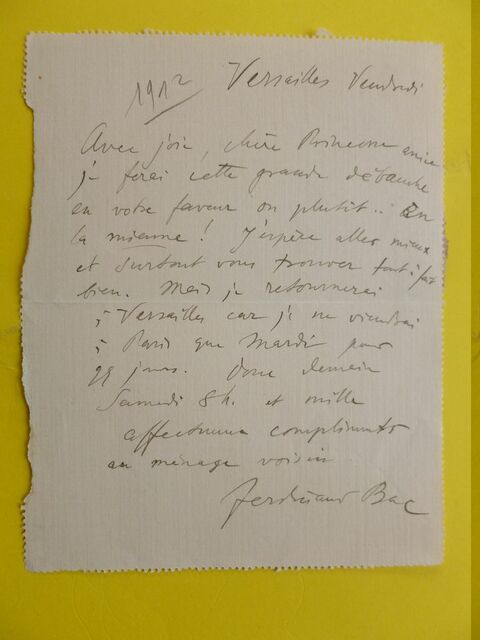 1912
Versailles Vendredi
Avec joie, chère Princesse amie
je ferai cette grande débauche
en votre faveur ou plutôt.. En
la mienne! J'espère aller mieux
et surtout vous trouver tout à fait
bien. Mais je retournerai
à Versailles car je ne viendrai
à Paris que Mardi pour
jours. Donc demain
Samedi 8h. et mille
affectueux compliments
au ménage voisin
Ferdinand Bac